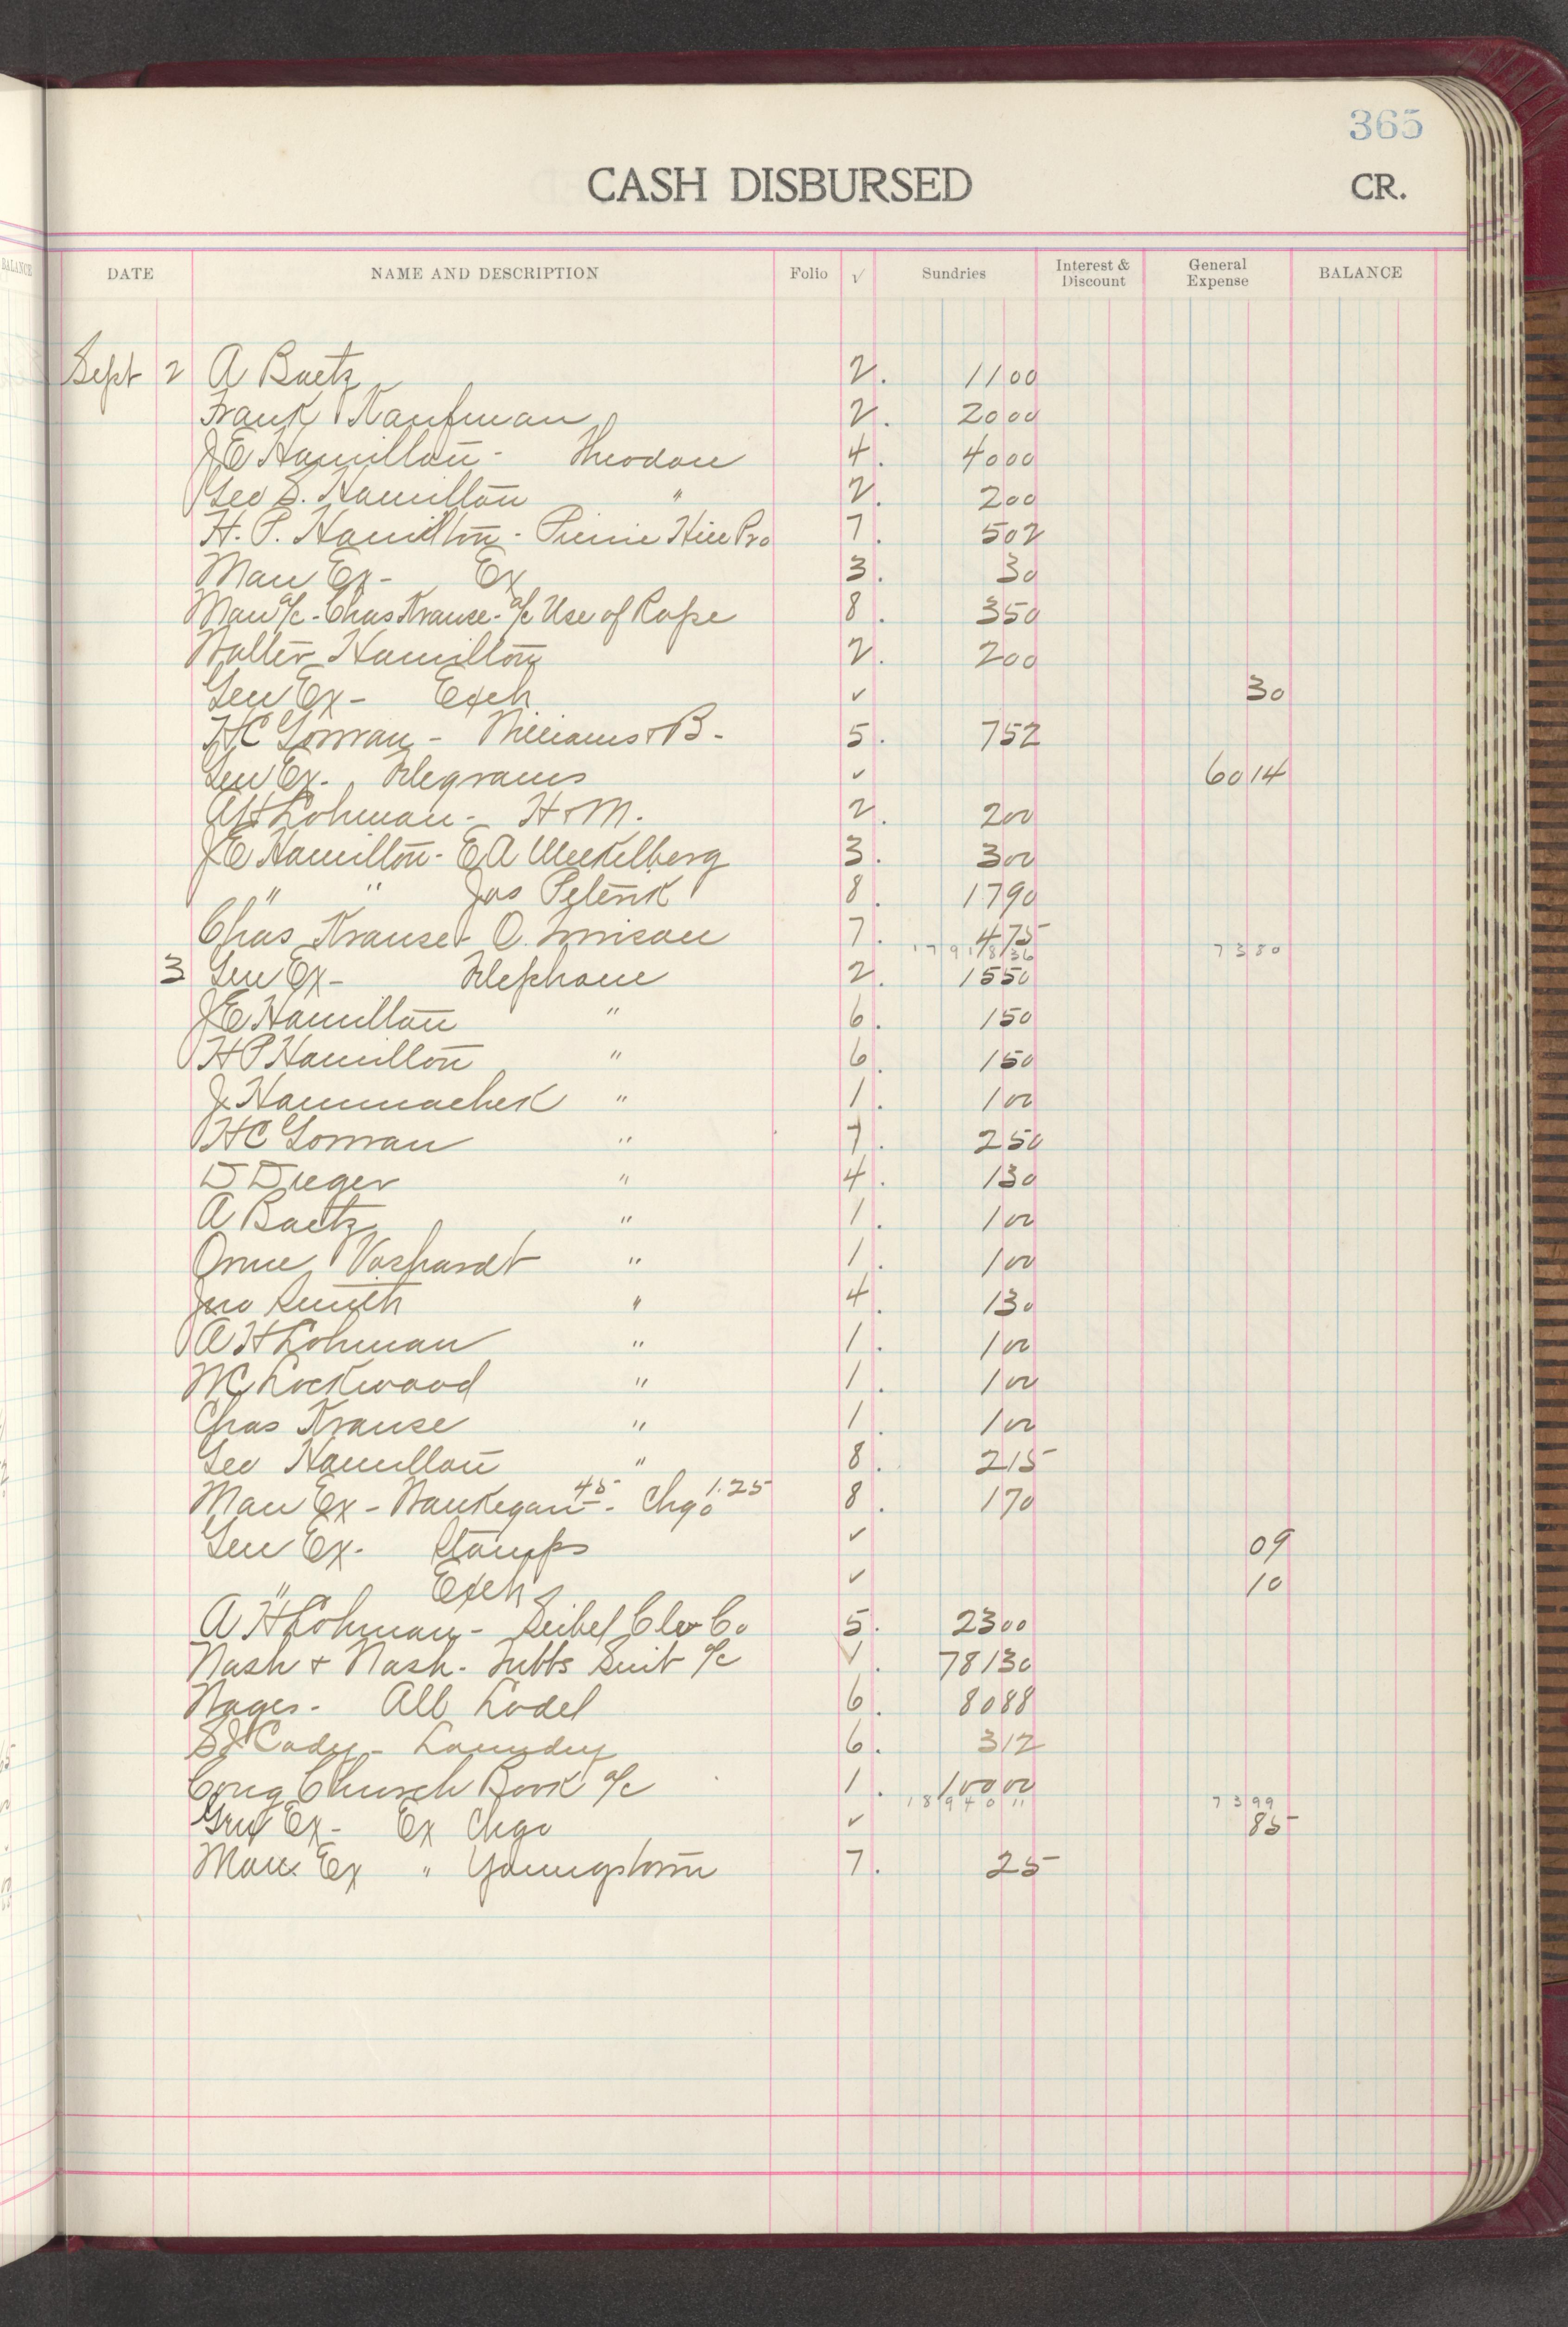 365
CASH DISBURSED CR.
BALANCE
DATE NAME AND DESCRIPTION Folio √ Sundries Interest & Discount General Expense BALANCE
Sept 2 A Baetz 2. 11 00
Frank Kaufman 2. 20 00
J E Hamilton - Theodore 4. 40 00
Geo S. Hamilton " 2. 2 00
H. P. Hamilton - Hill Pro 7. 5 02
Man Ex - Ex 3. 30
Man a/c - Chas Krause - a/c Use of Rope 8. 3 50
Walter Hamilton 2. 2 00
Gen Ex - Exch ✓ 30
H C Gorman - Williams & B - 5. 7 52
Gen Ex. Telegrams ✓ 60 14
A H Lohman - H & M. 2. 2 00
J E Hamilton - E A Meekelberg 3. 3 00
" " Jos Petenk 8. 17 90
Chas Krause & O. 7. 4 75
1791836 7380
3 Gen Ex - Telephone 2. 15 50
J E Hamilton " 6. 1 50
H P Hamilton " 6. 1 50
J Hammachek " 1. 1 00
H C Gorman " 7. 2 50
D Dreger " 4. 1 30
A Baetz " 1. 1 00
Orme Voshardt " 1. 1 00
Jno Smith " 4. 1 30
A H Lohman " 1. 1 00
W C Lockwood " 1. 1 00
Chas Krause " 1. 1 00
Geo Hamilton " 8. 2 15
Man Ex - Waukegan 45 - Chgo 1.25 8. 1 70
Gen Ex. Stamps ✓ 09
" Exch ✓ 10
A H Lohman - Seibel Co 5. 23 00
Nash & Nash - Tubbs Suit a/c √. 781 30
Wages - Alb Lodel 6. 80 88
S J Cady - Laundry 6. 3 12
Cong Church Book a/c 1. 100 00
1894011 7399
Gen Ex - Ex Chgo ✓ 85
Man Ex " Youngstown 7. 25